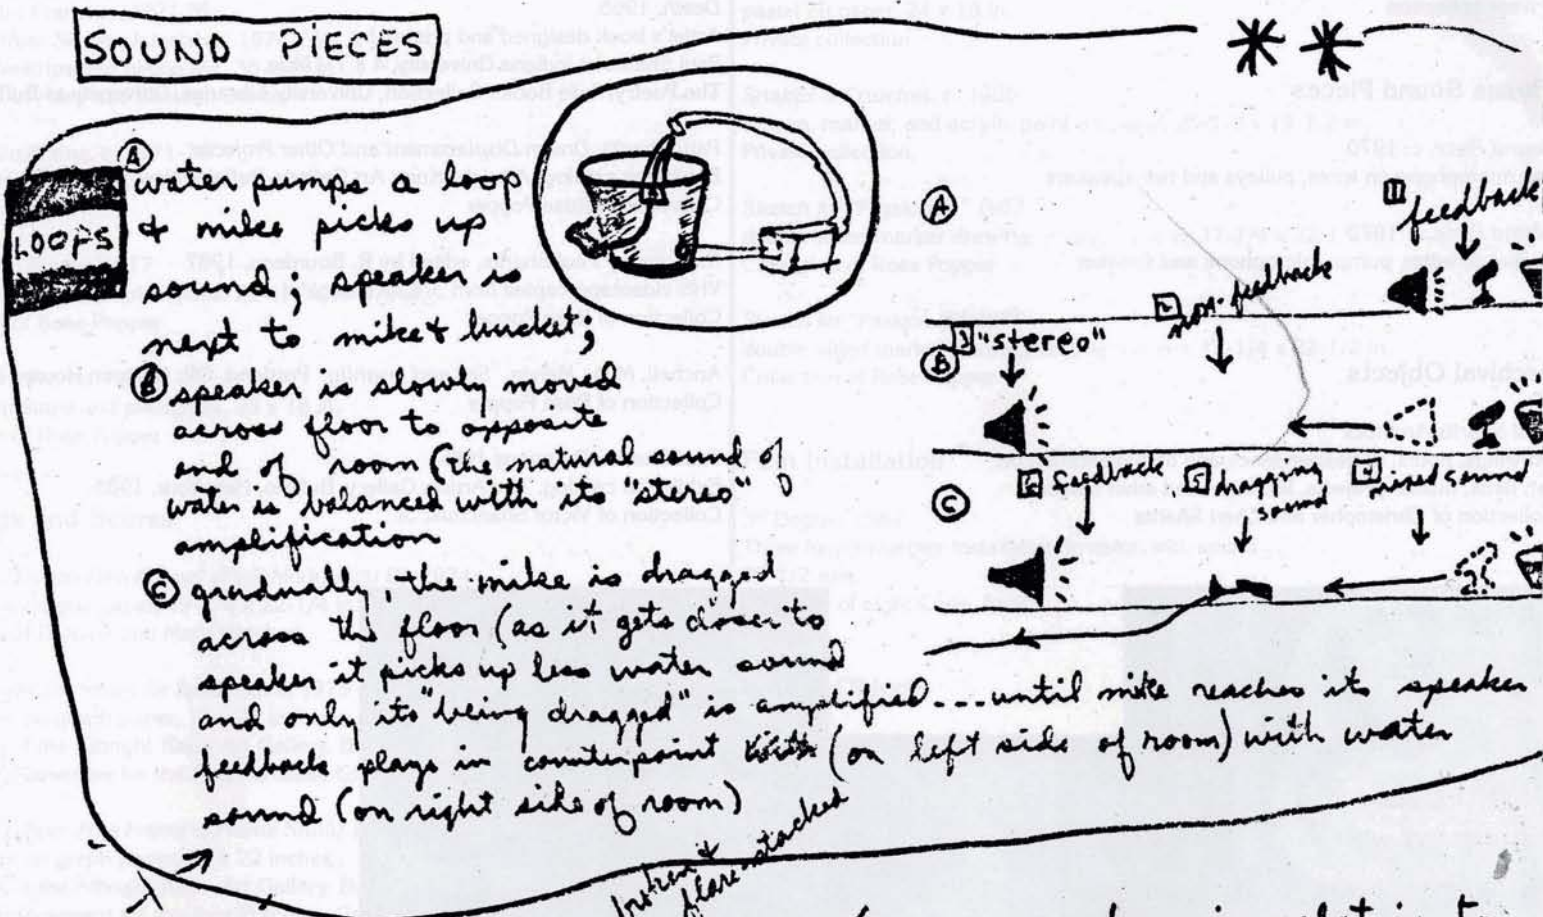 SOUND PIECES
**
LOOPS
Ⓐ water pumps a loop
+ mike picks up
sound, speaker is
next to mike & bucket,
Ⓑ speaker is slowly moved
across floor to opposite
end of room (the natural sound of
water is balanced with its "stereo"
amplification
Ⓒ gradually, the mike is dragged
across the floor (as it gets closer to
speaker it picks up less water sound
and only its "being dragged" is amplified...until mike reaches its speaker
feedback plays in counterpoint (on left side of room) with water
sound (on right side of room)
Ⓐ
1 feedback
2 non-feedback
Ⓑ
3 "stereo"
Ⓒ
feedback
dragging
sound
4
stacked